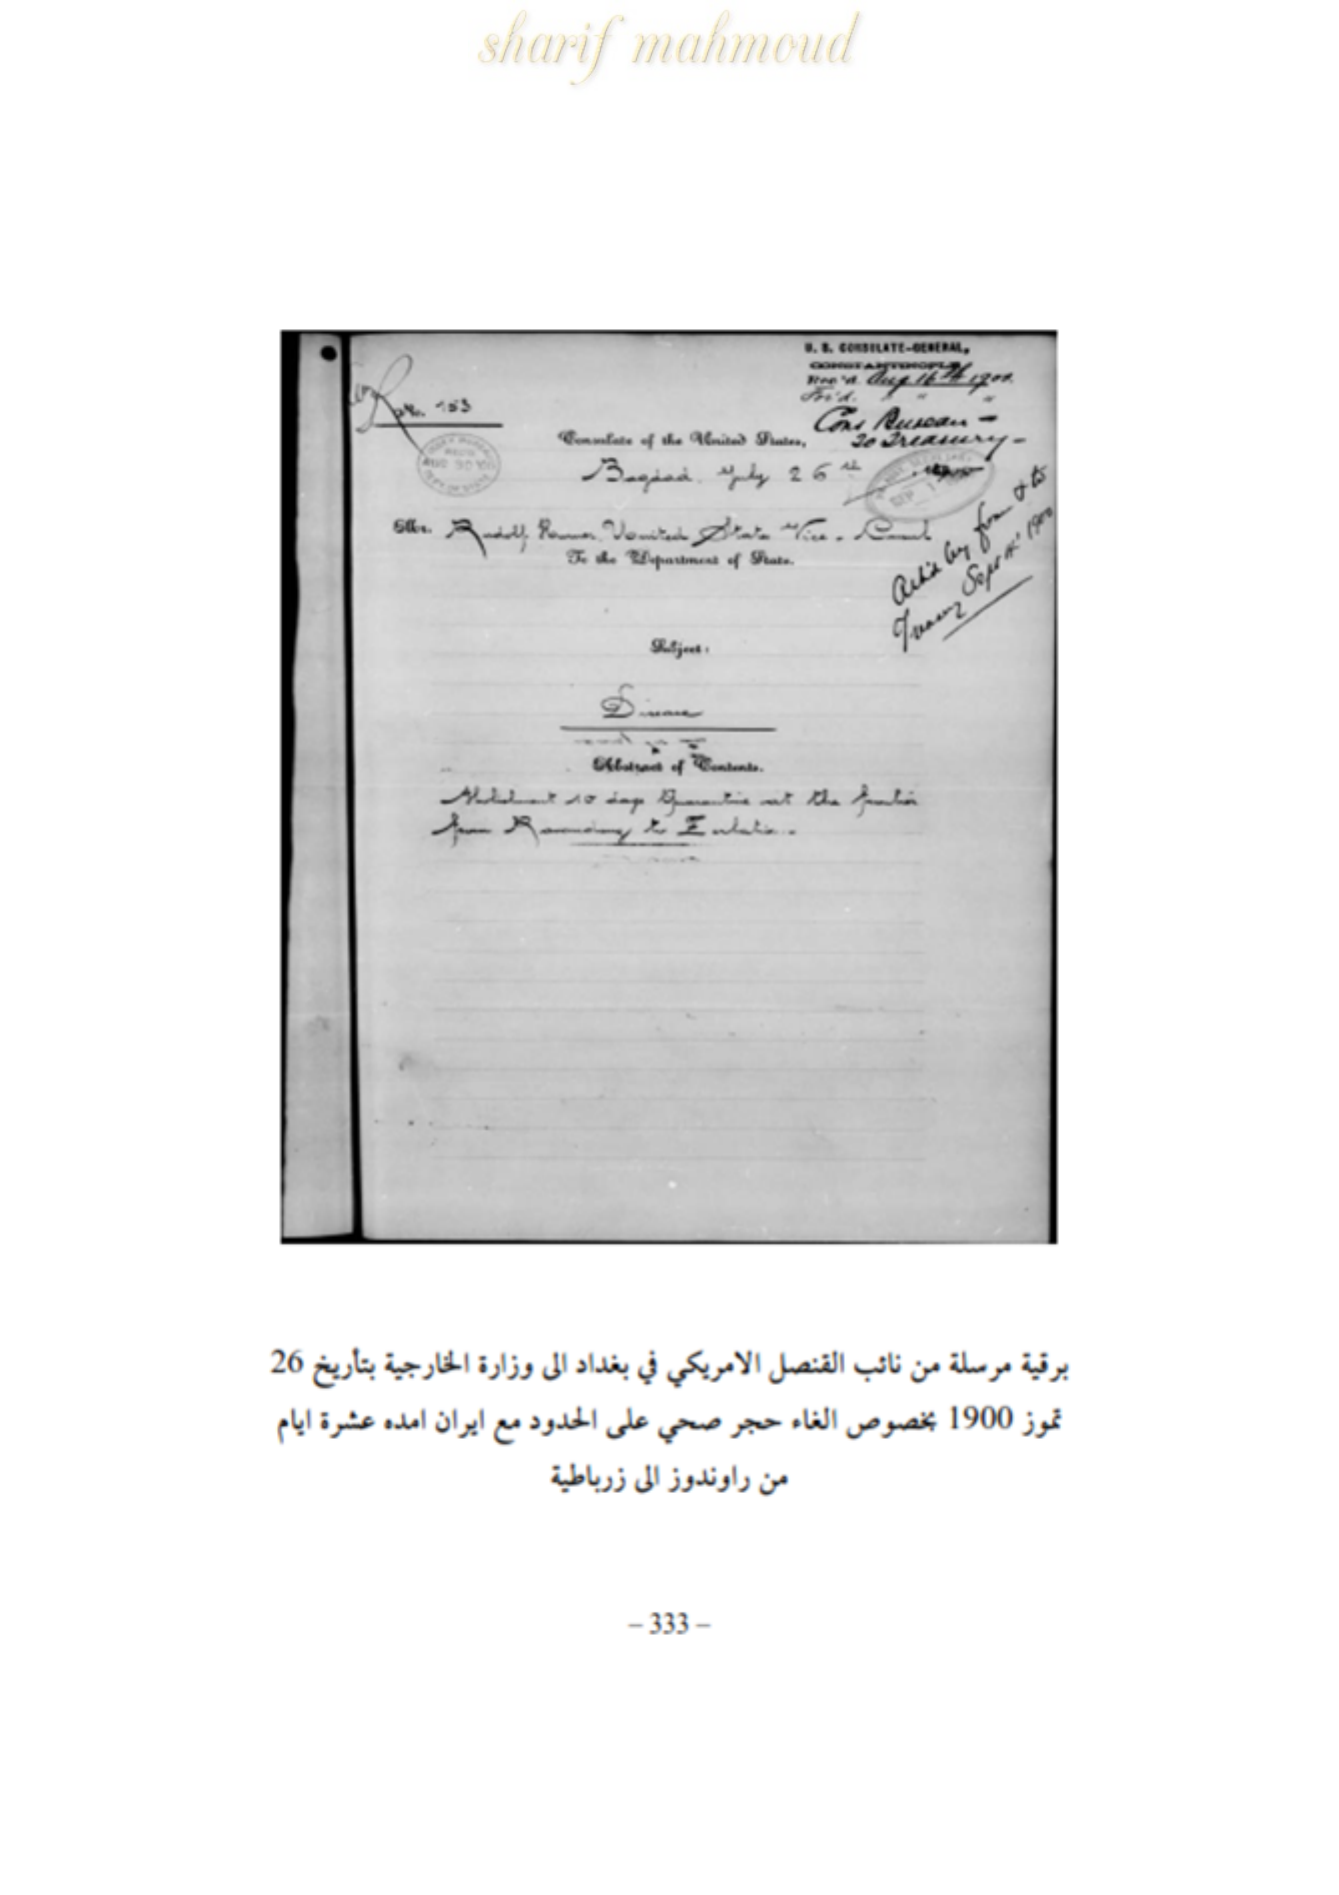 sharif mahmoud
U. S. CONSULATE-GENERAL,
CONSTANTINOPLE
Rec'd. Aug 16th 1900.
For'd. " " "
No. 153
Cons Bureau -
To Treasury -
Consulate of the United States,
Bagdad, July 26th
Mr. Rudolf United States Vice-Consul
To the Department of State.
Treasury Sept 1900
Subject:
Disease
Abstract of Contents.
10 days Quarantine at the frontier
from to
برقية مرسلة من نائب القنصل الامريكي في بغداد الى وزارة الخارجية بتأريخ 26
تموز 1900 بخصوص الغاء حجر صحي على الحدود مع ايران امده عشرة ايام
من راوندوز الى زرباطية
– 333 –